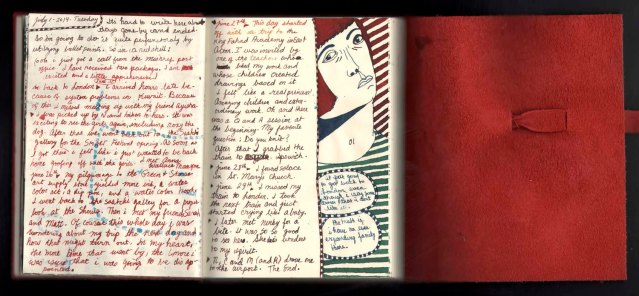 July 1 - 2014 - Tuesday
It's hard to write here when
Days gone by and ended.
So I'm going to do it quite perfunctorily by
utilizing bullet points. So in a nutshell:
I just got a call from the Murray post
office. I have received two packages. I am
excited and a little apprehensive!
So back to London. I arrived hours late be-
cause of system problems in Kuwait. Because
of that I missed meeting up with my friend
I was picked up by N and taken to hers. It was
exciting to see the girls again, including Roxy the
dog. After that we went out to the Saatchi
gallery for the Opening. As soon as
I got there I felt like I just wanted to be back
home goofing off with the girls. I met
June 26th my pilgrimage to the Green & Stone
art supply store yielded more ink, a water
color set, a dip pen, and a water color
I went back to the Saatchi gallery for a
look at the show. Then I met my friends
and Matt. Of course this whole day I was
wondering about my trip the next day and
how that might turn out. In my heart,
the more time that went by, the
was that I was going to be dis-
appointed.
June 27th This day started
off with a trip to the
King Fahad Academy in East
Acton. I was invited by
one of the teachers who
liked my work and
whose children created
drawings based on it
I felt like a real princess!
Amazing children and extra-
ordinary work. Oh and there
was a Q and A session at
the beginning. My favorite
question: Do you knit?
After that I grabbed the
train to Ipswich.
June 28th I found solace
in St. Mary's Church
June 29th, I missed my
train to London. I took
the next train and just
started crying like a baby.
I later met nunky for a
bite. It was so so good
to see her. She's kindness
to my spirit.
N, C and M (and A) drove me
to the airport. The End.
01
it felt good
to get back to
The truth is
I have no idea
regarding family